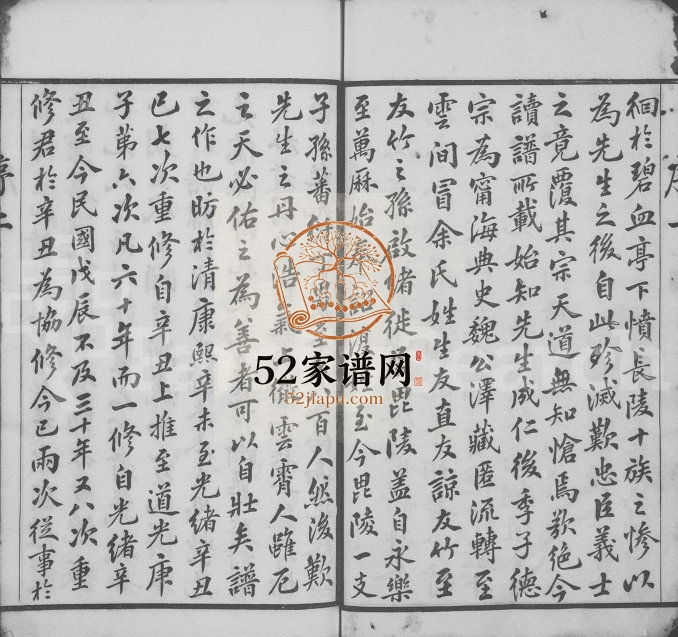 徊於碧血亭下憤長陵十族之慘以
為先生之後自此殄滅歎忠臣義士
之竟覆其宗天道無知愴焉欲絕今
讀譜所載始知先生成仁後季子德
宗為甯海典史魏公澤藏匿流轉至
雲間冒余氏姓生友直友諒友竹至
友竹之孫啟緒徙毘陵蓋自永樂
至萬厤始姓至今毘陵一支
子孫蕃至百人然後歎
先生之丹心浩氣雲霄人雖厄
之天必佑之為善者可以自壯矣譜
之作也昉於清康熙辛未至光緒辛丑
已七次重修自辛丑上推至道光庚
子第六次凡六十年而一修自光緒辛
丑至今民國戊辰不及三十年又八次重
修君於辛丑為協修今已兩次從事於
序二
52家谱网
52jiapu.com